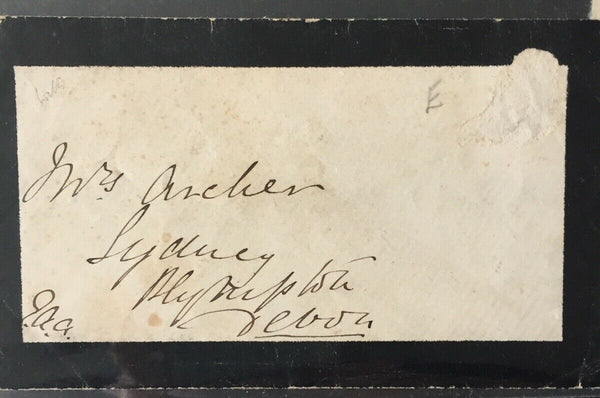 E
Mrs Archer
Sydney
Plympton
Devon